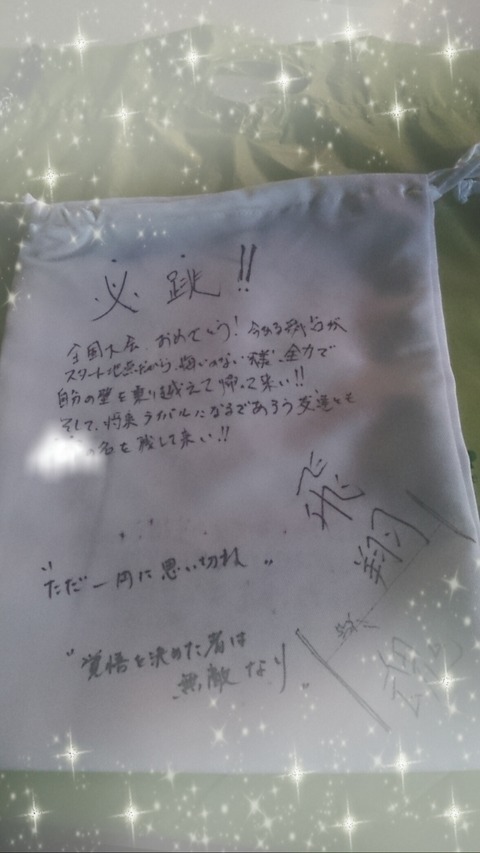 必跳!!
全国大会、おめでとう!今ある時点が
スタート地点だから、悔いのない様、全力で
自分の壁を乗り越えて帰って来い!!
そして、将来ライバルになるであろう友達とも
の名を残して来い!!
飛翔
魂
"ただ一向に思い切れ"
"覚悟を決めた者は
無敵なり"